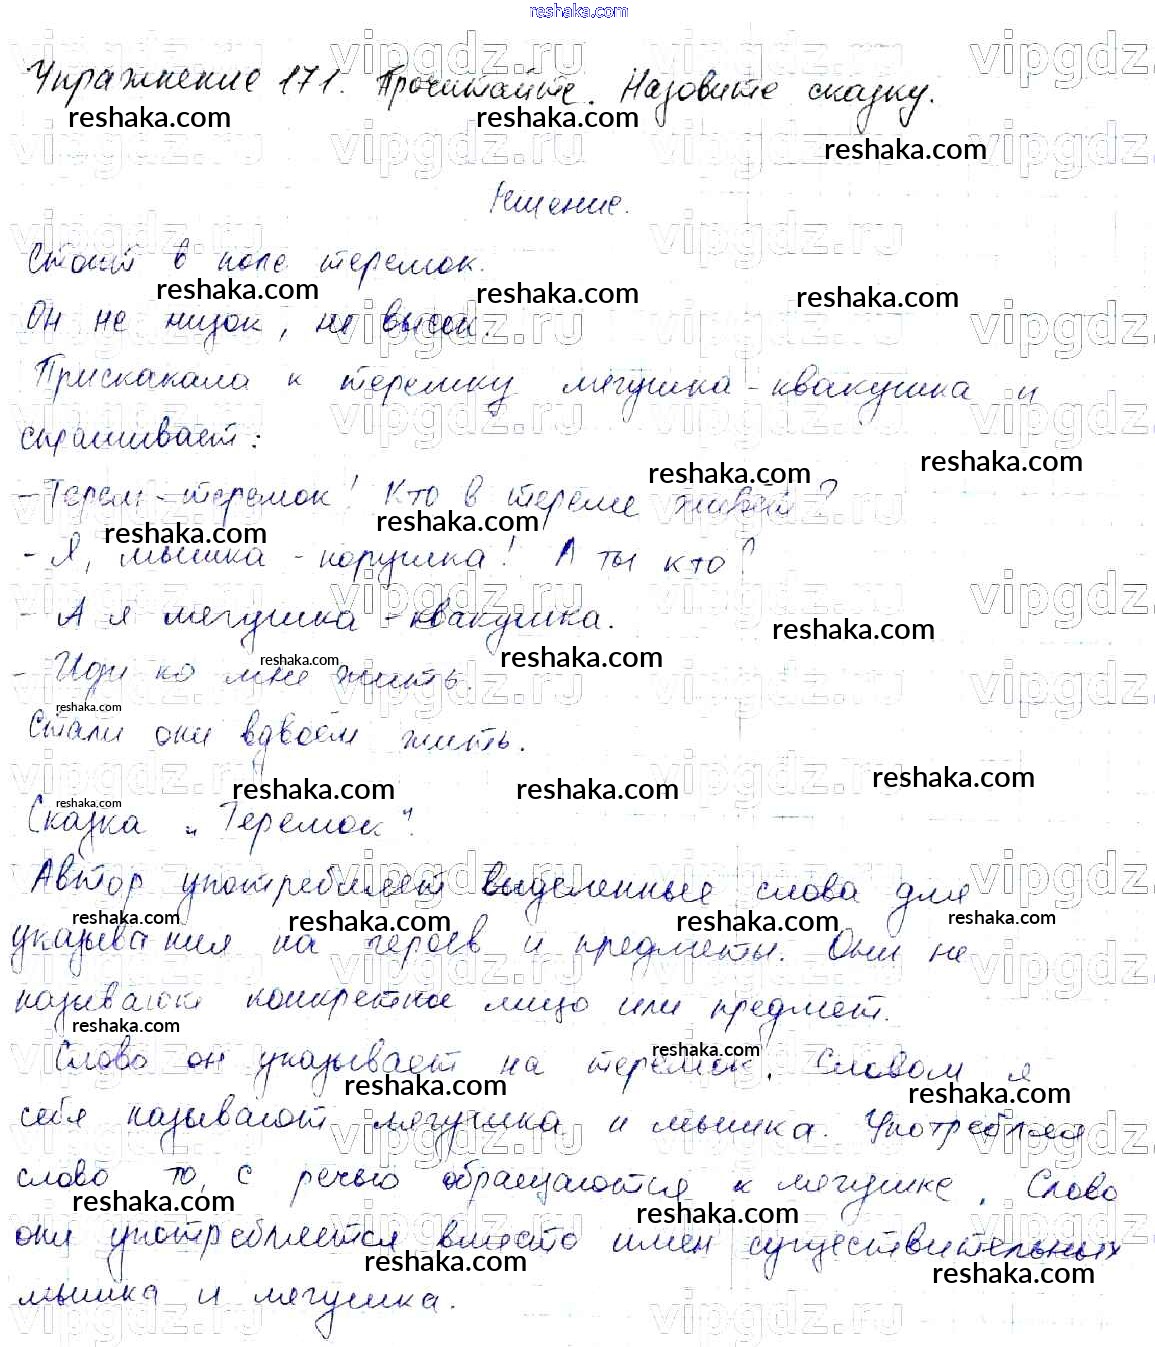 reshaka.com
Упражнение 171. Прочитайте. Назовите сказку.
Решение.
Стоит в поле теремок.
Он не низок, не высок.
Прискакала к теремку лягушка-квакушка и
спрашивает:
- Терем-теремок! Кто в тереме живёт?
- Я, мышка-норушка! А ты кто?
- А я лягушка-квакушка.
- Иди ко мне жить.
Стали они вдвоём жить.
Сказка „Теремок".
Автор употребляет выделенные слова для
указывания на героев и предметы. Они не
называют конкретное лицо или предмет.
Слово он указывает на теремок. Словом я
себя называют лягушка и мышка. Употребляя
слово то, с речью обращаются к лягушке. Слово
они употребляется вместо имен существительных
мышка и лягушка.